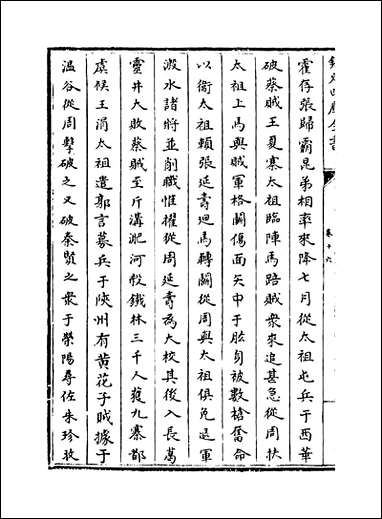 欽定四庫全書
卷十六
霍存張歸霸昆弟相率來降七月從太祖屯兵于西華
破蔡賊王夏寨太祖臨陣馬踣賊衆來追甚急從周扶
太祖上馬與賊軍格鬬傷面矢中于肱身被數槍奮命
以衞太祖賴張延壽廻馬轉鬬從周與太祖俱免退軍
溵水諸將並削職惟擢從周延壽為大校其後入長葛
靈井大敗蔡賊至斤溝淝河殺鐵林三千人獲九寨都
虞候王涓太祖遣郭言募兵于陝州有黄花子賊據于
温谷從周擊破之又破秦賢之衆于滎陽尋佐朱珍收